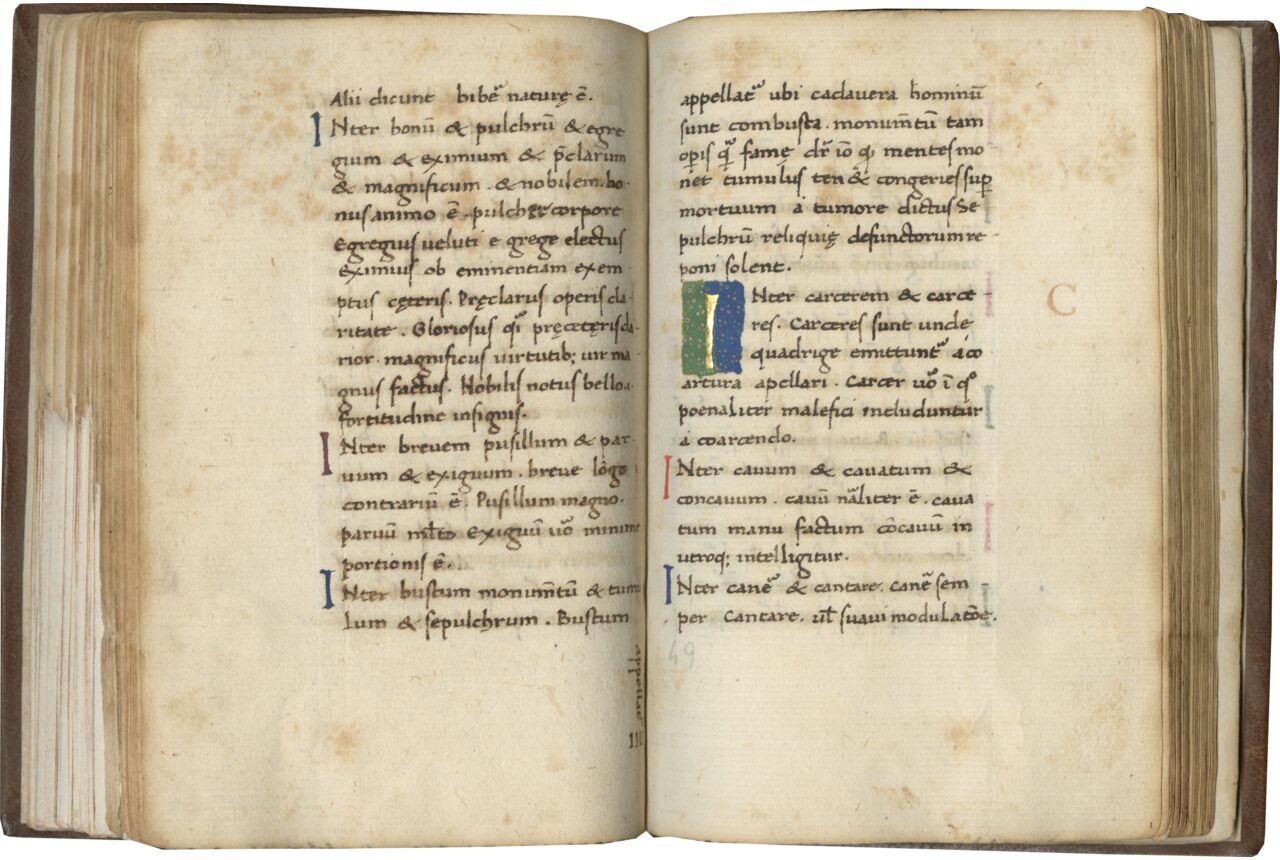 Alii dicunt bibe᷒ naturę ē.
INter bonū & pulchrū & egre
gium & eximium & p̄clarum
& magnificum . & nobilem . bo-
nus animo ē . pulcher corpore
Egregius ueluti e grege electus
Eximius ob eminentiam exem-
ptus cęteris. Pręclarus operis cla-
ritate. Gloriosus q̄ pręceteris cla-
rior. magnificus uirtutib; uir ma-
gnus factus. Nobilis notus bello.
fortitudine insignis.
INter breuem pusillum & par-
uum & exiguum . breue lōgo
contrariū ē. Pusillum magno.
paruū ml̄to Exiguū uō minime
portionis ē.
INter bustum monum̄tū & tumu
lum & sepulchrum . Bustum
appellat᷒
appellat᷒ ubi cadauera hominū
sunt combusta. monum̄tū tam
opis q᷒ famę dr̄ iō q, mentes mo-
net tumulus ten & congeries sup
mortuum a tumore dictus Se
pulchrū reliquię defunctorum re-
poni solent.
INter carcerem & carce-
res. Carceres sunt unde
quadrige emittunt᷒ a co
artura apellari. Carcer uō ī qᵒ
poenaliter malefici includuntur
a coarcendo.
C
INter cauum & cauatum &
concauum . cauū nāliter ē . caua
tum manu factum cōcauū in
utroq; intelligitur.
INter cane᷒ & cantare. cane᷒ sem-
per Cantare. ul̄ suaui modulatōe.
49